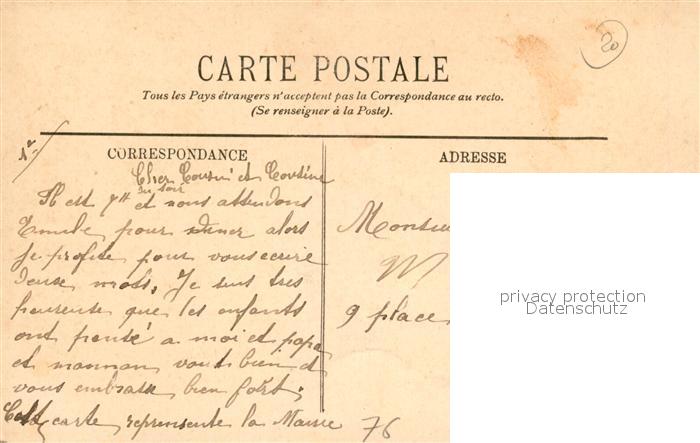 20
CARTE POSTALE
Tous les Pays étrangers n'acceptent pas la Correspondance au recto.
(Se renseigner à la Poste).
CORRESPONDANCE
ADRESSE
Cher Cousin et Cousine
du soir
Il est 7H et nous attendons
pour diner alors
je profite pour vous ecrire
deux mots. Je suis tres
heureuse que les enfants
ont pensé a moi et papa
et maman vont bien et
vous embrasse bien fort;
Cette carte represente la Mairie
Monsieu
M
9 place
76
privacy protection
Datenschutz